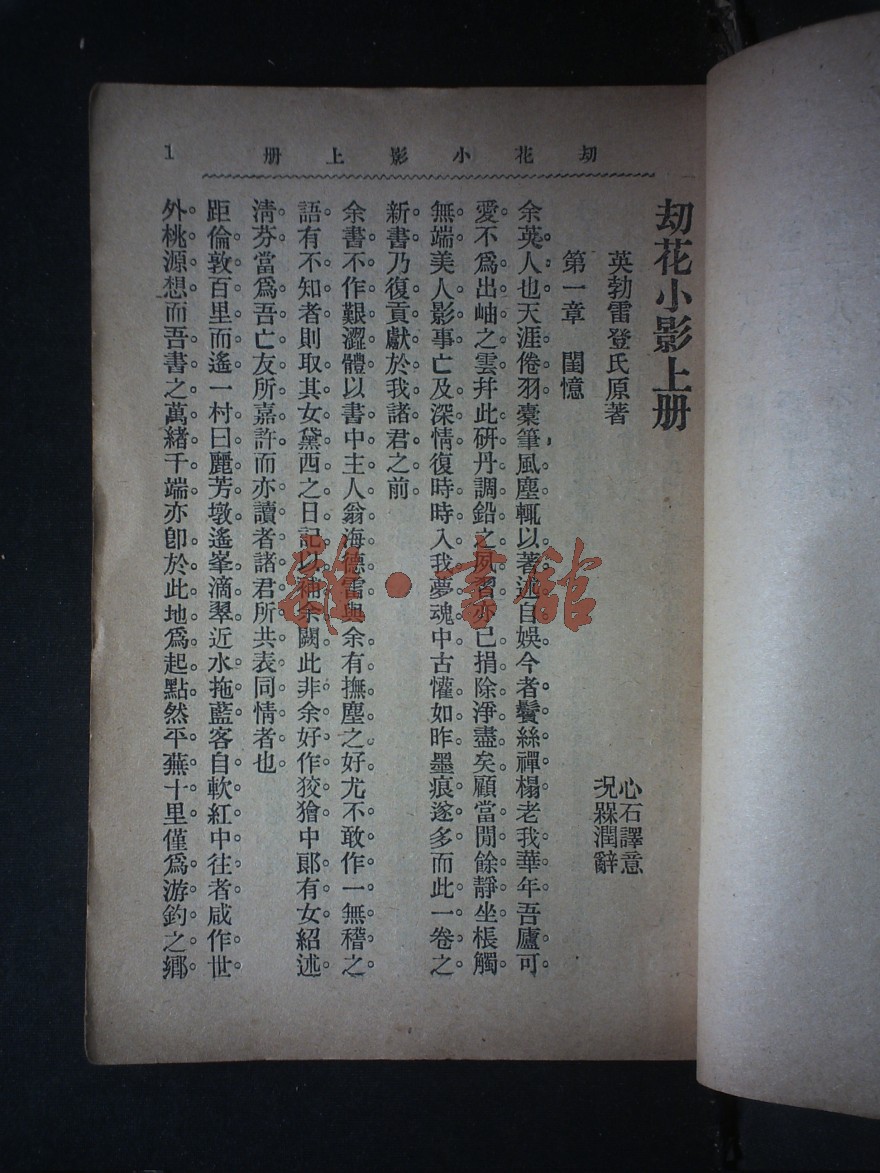 劫花小影上册
1
劫花小影上册
英勃雷登氏原著
心石譯意
况槑潤辭
第一章 閨憶
余英人也天涯倦羽橐筆風塵輒以著述自娛今者鬢絲禪榻老我華年吾廬可
愛不爲出岫之雲幷此硏丹調鉛之夙習亦已捐除淨盡矣顧當閒餘靜坐棖觸
無端美人影事亡友深情復時時入我夢魂中古懽如昨墨痕遂多而此一卷之
新書乃復貢獻於我諸君之前
余書不作艱澀體以書中主人翁海德雷與余有撫塵之好尤不敢作一無稽之
語有不知者則取其女黛西之日記以補余闕此非余好作狡獪中郞有女紹述
淸芬當爲吾亡友所嘉許而亦讀者諸君所共表同情者也
距倫敦百里而遙一村曰麗芳墩遙峯滴翠近水拖藍客自軟紅中往者咸作世
外桃源想而吾書之萬緖千端亦卽於此地爲起點然平蕪十里僅爲游釣之鄕
雜·書館